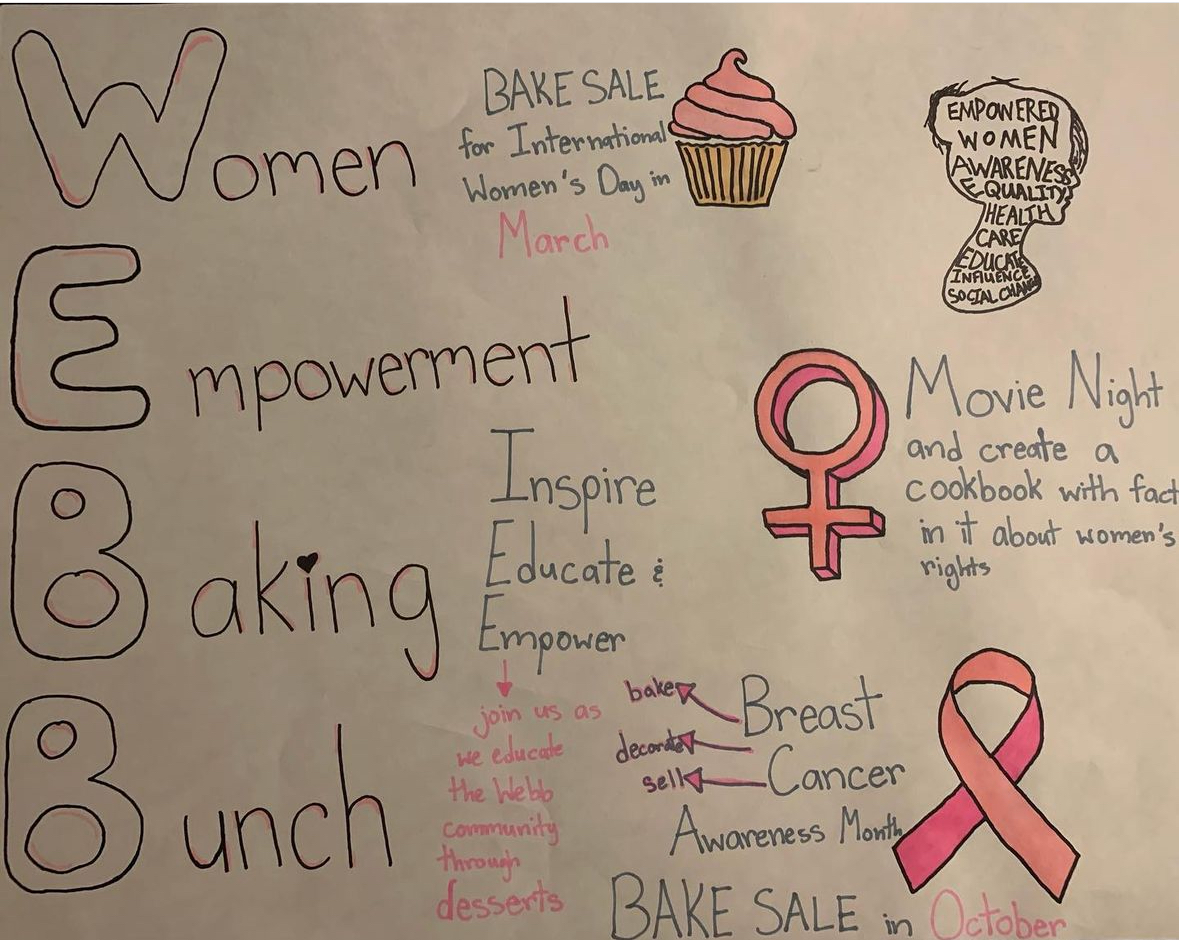 Women
BAKE SALE
for International
Women's Day in
March
EMPOWERED
WOMEN
AWARENESS
EQUALITY
HEALTH
CARE
EDUCATE
INFLUENCE
SOCIAL CHANGE
Empowerment
Movie Night
and create a
cookbook with fact
in it about women's
rights
Baking
Inspire
Educate &
Empower
join us as
we educate
the Webb
community
through
desserts
Bunch
bake
decorate
sell
Breast
Cancer
Awareness Month
BAKE SALE in October